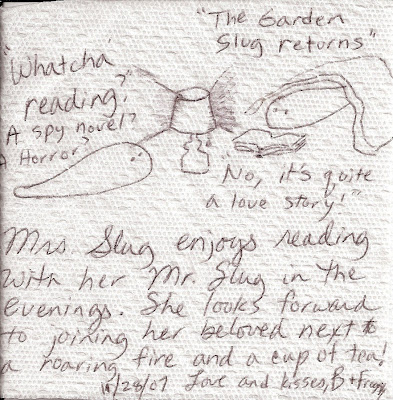 "The Garden
Slug returns"
"Whatcha
reading?"
A spy novel?
A Horror?
"No, it's quite
a love story!"
Mrs Slug enjoys reading
with her Mr. Slug in the
evenings. She looks forward
to joining her beloved next to
a roaring fire and a cup of tea!
Love and kisses, B +